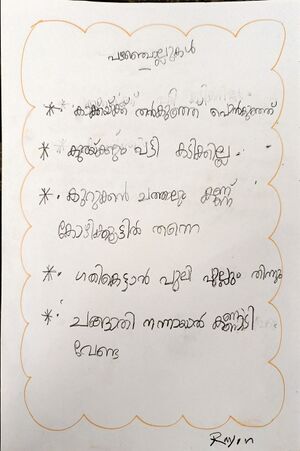 പഴഞ്ചൊല്ലുകൾ
* കാക്കയ്ക്കു തൻകുഞ്ഞ് പൊൻകുഞ്ഞ്
* കുരയ്ക്കും പട്ടി കടിക്കില്ല
* കുറുക്കൻ ചത്താലും കണ്ണ്
കോഴിക്കൂട്ടിൽ തന്നെ
* ഗതികെട്ടാൽ പുലി പുല്ലും തിന്നും
* ചങ്ങാതി നന്നായാൽ കണ്ണാടി
വേണ്ട
Rayon